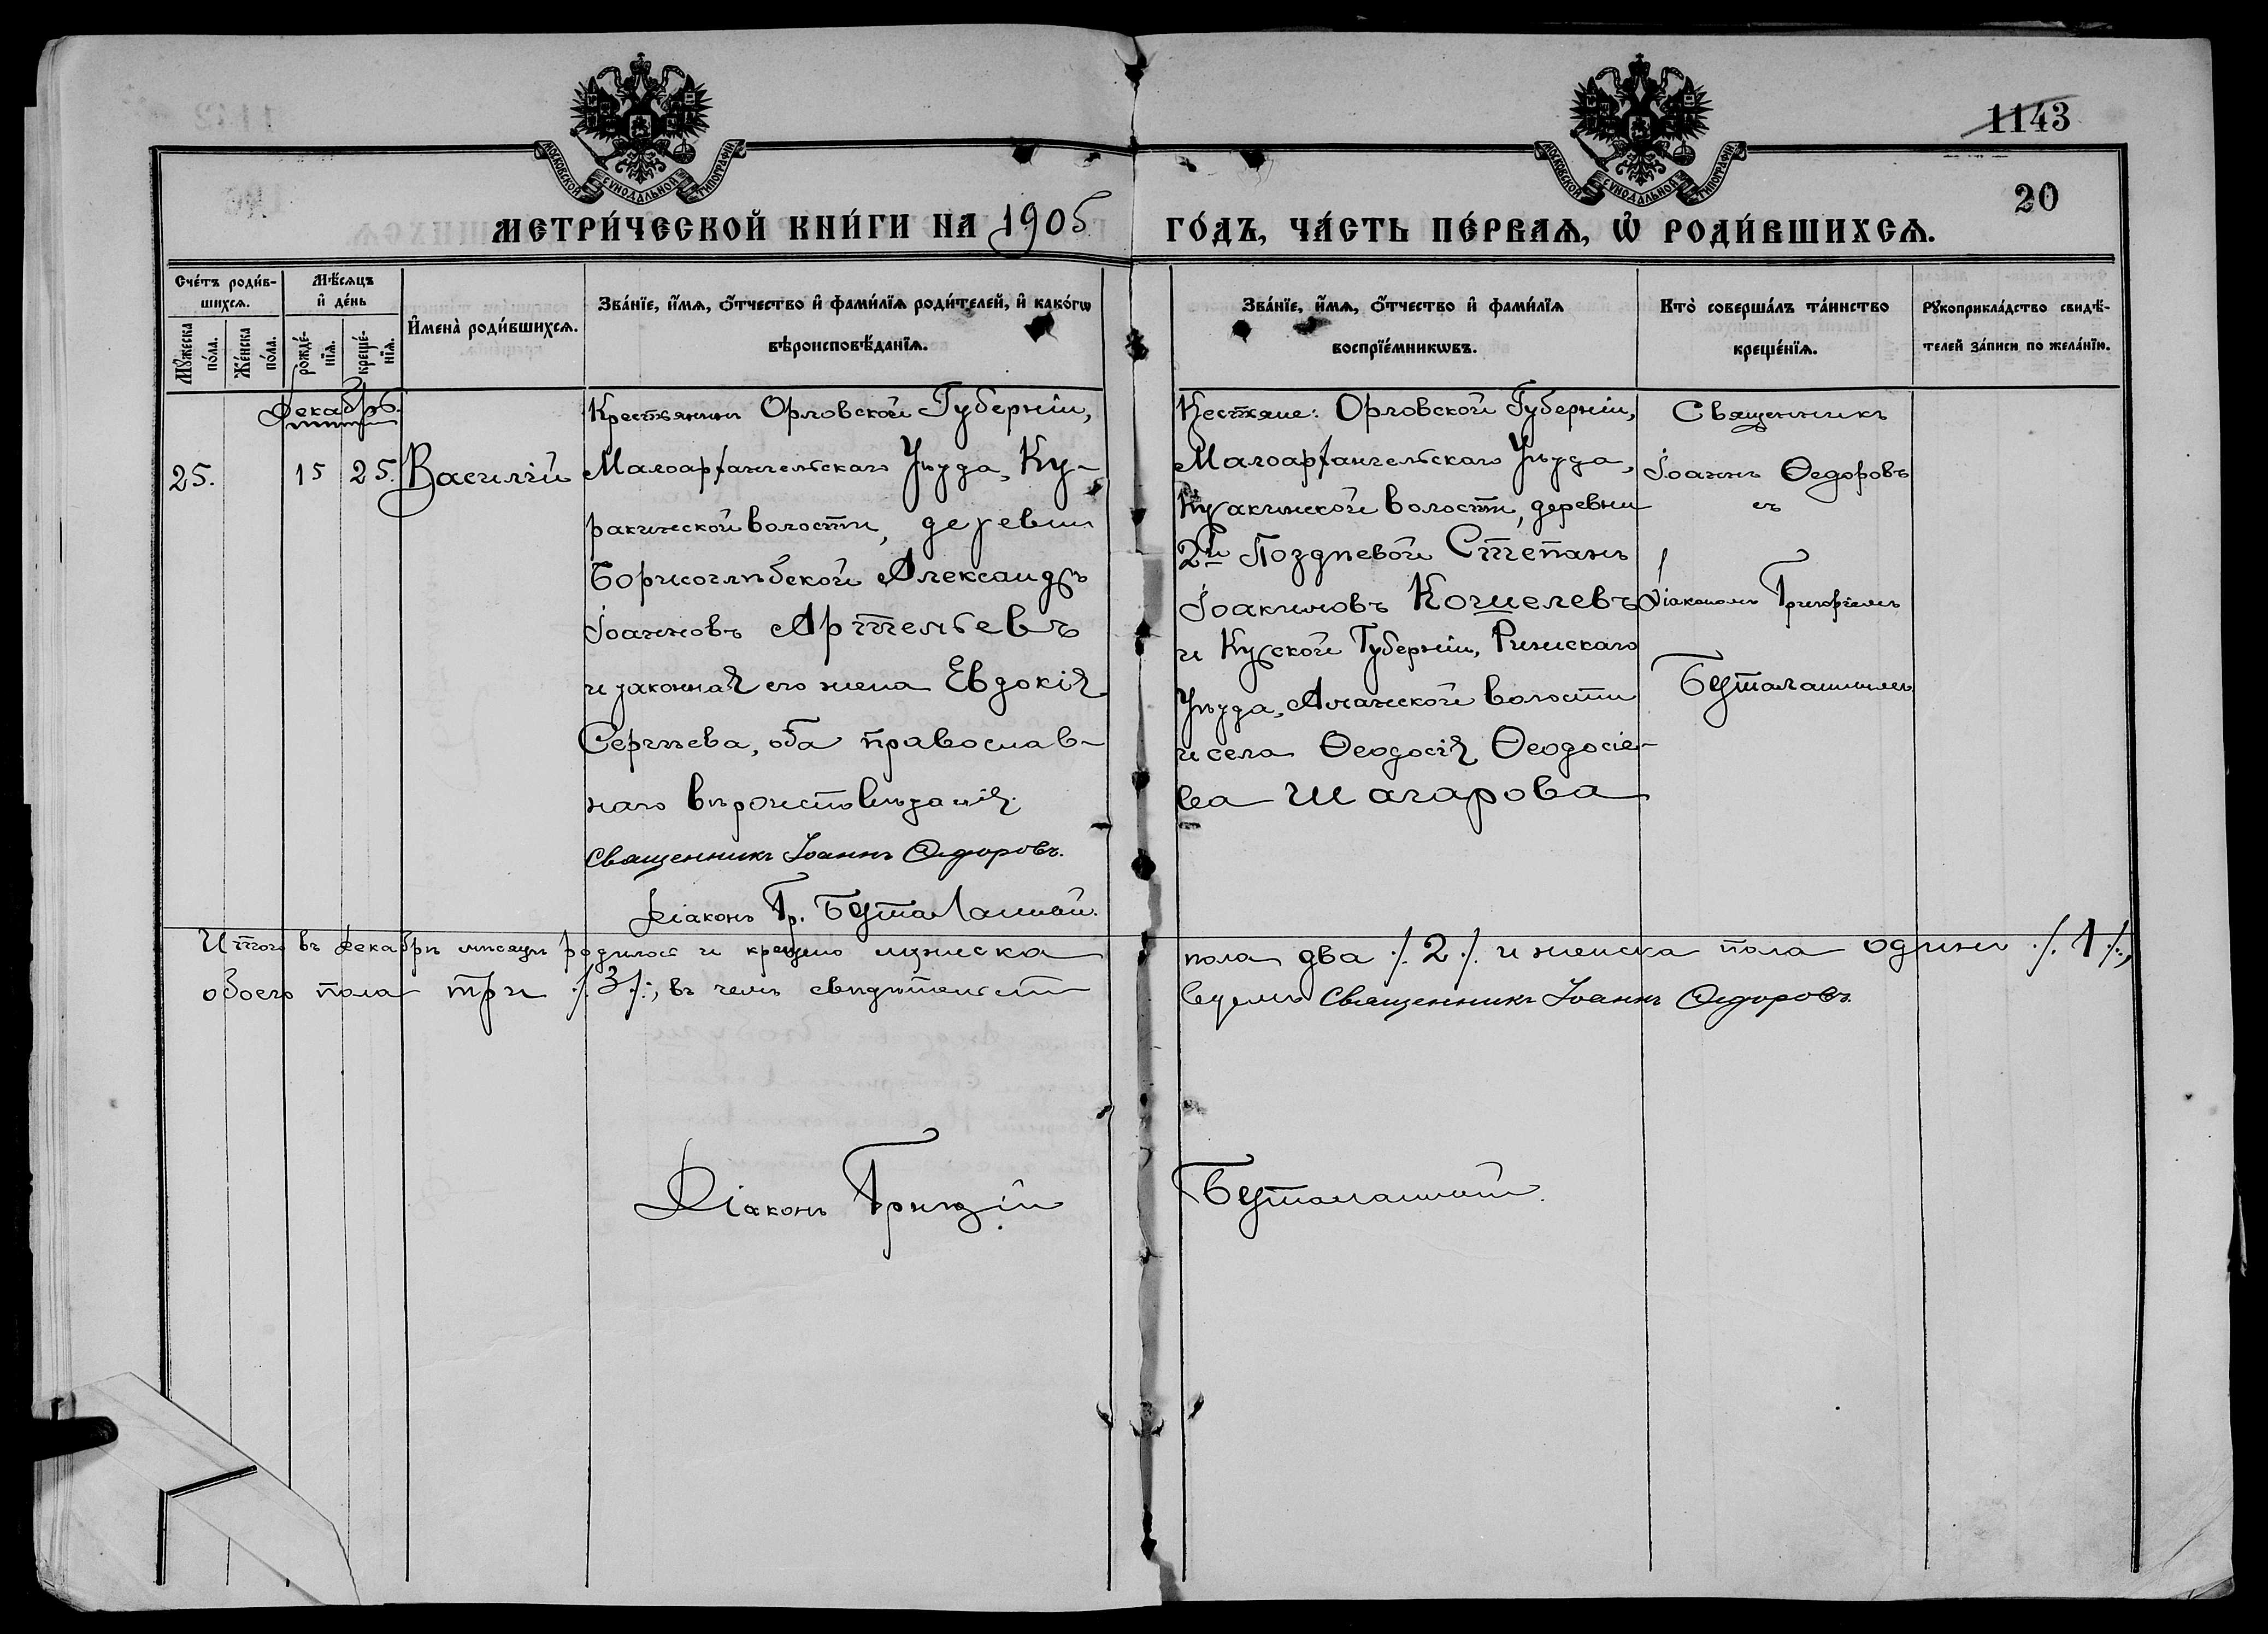 1143
20
МОСКОВСКОЙ СѴНОДАЛЬНОЙ ТИПОГРАФІИ
МОСКОВСКОЙ СѴНОДАЛЬНОЙ ТИПОГРАФІИ
МЕТРИ́ЧЕСКОЙ КНИ́ГИ НА 1905 ГО́ДЪ, ЧА́СТЬ ПЕ́РВАѦ, Ѡ҆ РОДИ́ВШИХСѦ.
Сче́тъ роди́в-
шихсѧ.
Мꙋ́жеска по́ла.
Же́нска по́ла.
Мѣ́сѧцъ
и҆ де́нь
рожде́-
нїѧ.
креще́-
нїѧ.
И҆мена̀ роди́вшихсѧ.
Зва́нїе, и҆́мѧ, ѻ҆́тчество и҆ фами́лїѧ роди́телей, и҆ како́гѡ
вѣроисповѣ́данїѧ.
Зва́нїе, и҆́мѧ, ѻ҆́тчество и҆ фами́лїѧ
воспрїе́мникѡвъ.
Кто̀ соверша́лъ та́инство
креще́нїѧ.
Рꙋкоприкла́дство свидѣ́-
телей за́писи по жела́нїю.
Декабрь.
25.
15
25.
Василій
Крестьянинъ Орловской Губерніи,
Малоархангельскаго Уѣзда, Ку-
ракинской волости, деревни
Борисоглѣбской Александръ
Іоанновъ Артемьевъ
и законная его жена Евдокія
Сергѣева, оба православ-
наго вѣроисповѣданія.
Священникъ Іоаннъ Ѳедоровъ.
Діаконъ Гр.
Кестяне: Орловской Губерніи,
Малоархангельскаго Уѣзда,
Куракинской волости, деревни
2й Поздневой Степанъ
Іоакимовъ Кошелевъ
и Курской Губерніи,
Уѣзда, волости
и села Ѳеодосія Ѳеодосіе-
ва Шагарова
Священникъ
Іоаннъ Ѳедоровъ
съ
Діакономъ Григоріемъ
Итого въ Декабрѣ мѣсяцѣ родилось и крещено мужеска пола два ./. 2 ./. и женска пола одинъ ./. 1 ./.,
обоего пола три ./. 3 ./., въ чемъ свидѣтельст вуемъ Священникъ Іоаннъ Ѳедоровъ.
Діаконъ Григорій